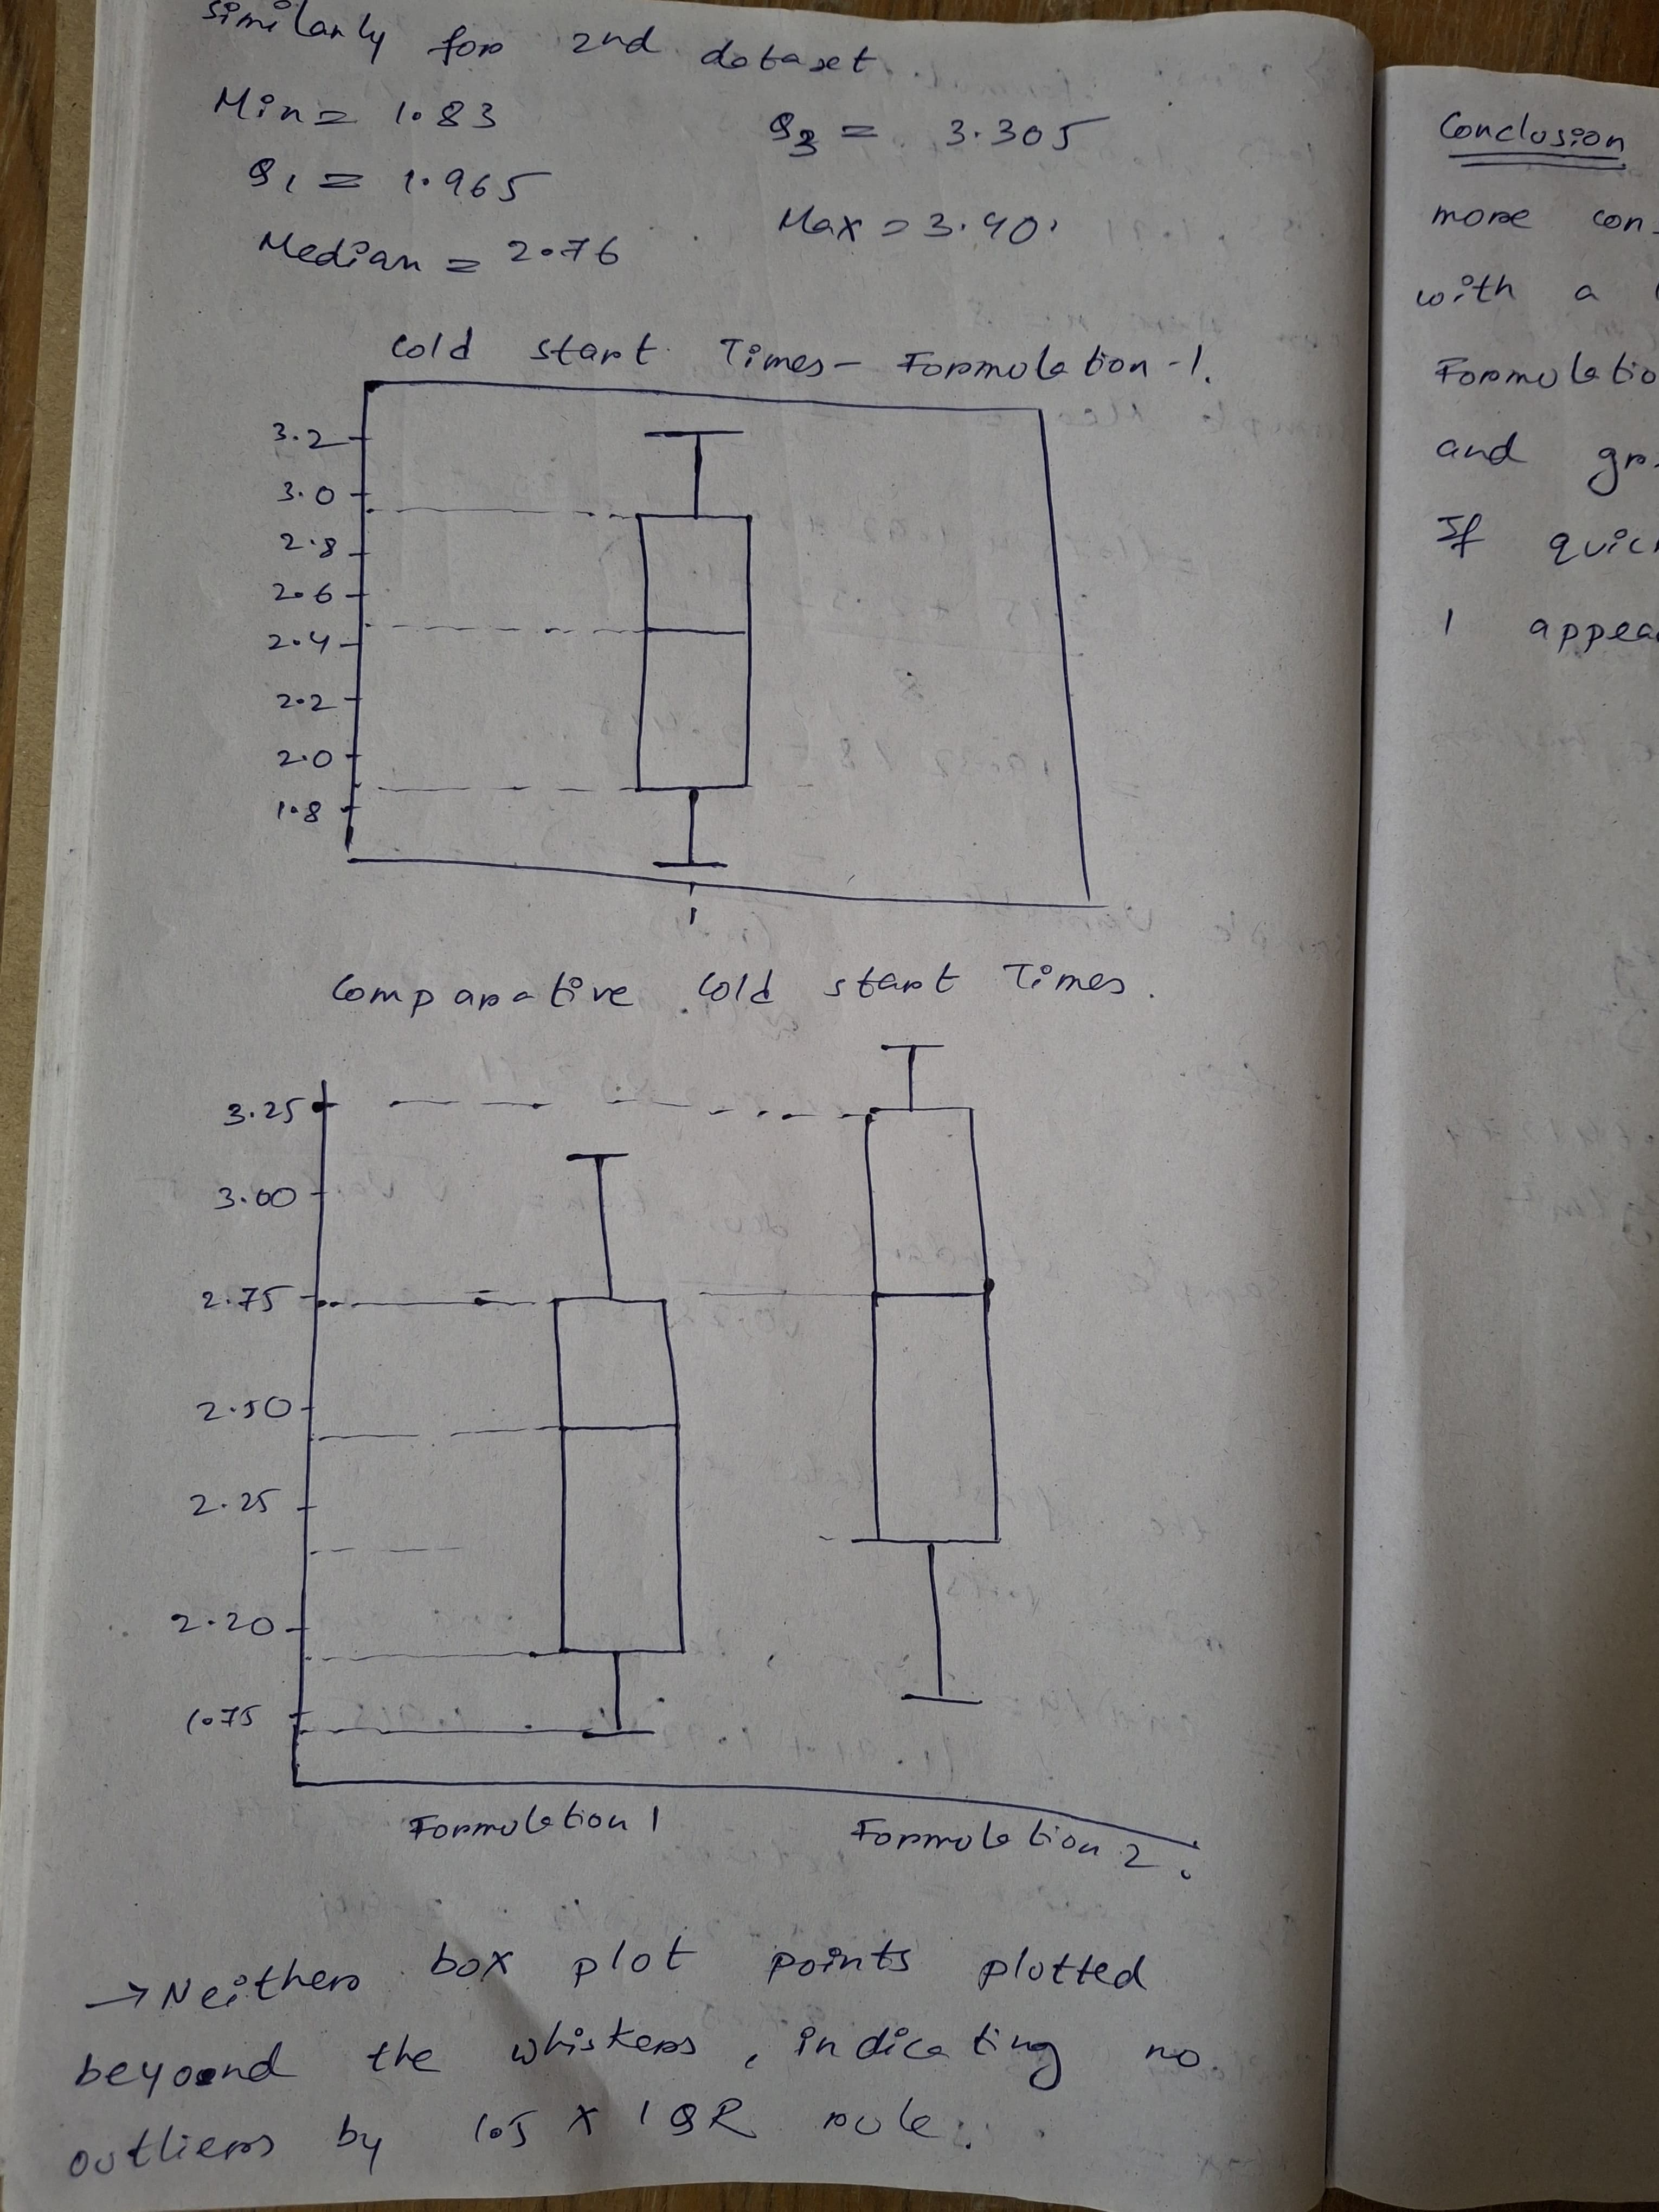 similarly for 2nd dataset
Min = 1.83
Q3 = 3.305
Q1 = 1.965
Max = 3.40
Median = 2.76
Cold start Times - Formulation - 1.
3.2
3.0
2.8
2.6
2.4
2.2
2.0
1.8
1
Comparative Cold start Times.
3.25
3.00
2.75
2.50
2.25
2.20
1.75
Formulation 1
Formulation 2.
→ Neither box plot points plotted
beyond the whiskers, indicating no
outliers by 1.5 X IQR rule.
Conclusion
more con
with a
Formulatio
and gr
If quic
1 appea